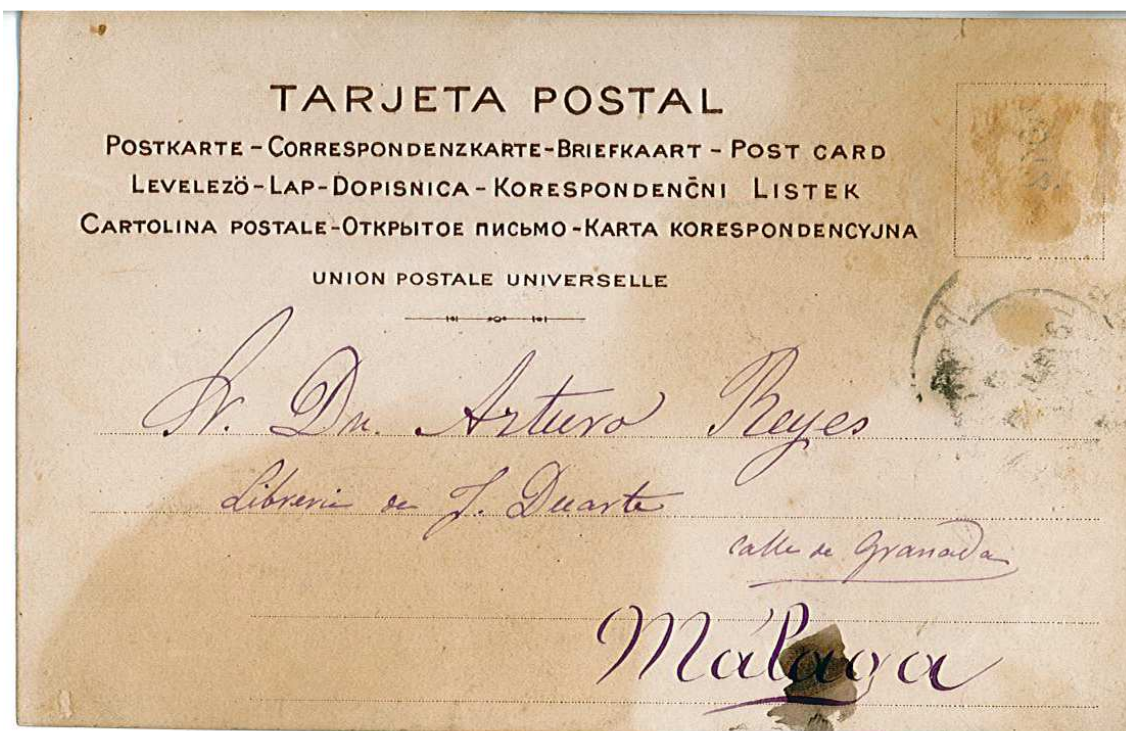 TARJETA POSTAL
POSTKARTE - CORRESPONDENZKARTE - BRIEFKAART - POST CARD
LEVELEZÖ - LAP - DOPISNICA - KORESPONDENČNI LISTEK
CARTOLINA POSTALE - ОТКРЫТОЕ ПИСЬМО - KARTA KORESPONDENCYJNA
UNION POSTALE UNIVERSELLE
Sr. Dn. Arturo Reyes
Libreria de J. Duarte
calle de Granada
Málaga